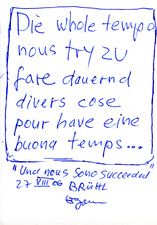 Die whole tempo
nous try zu
fare dauernd
divers cose
pour have eine
buona temps...
"Und nous sono succeeded"
27 VIII 06 BRÜHL